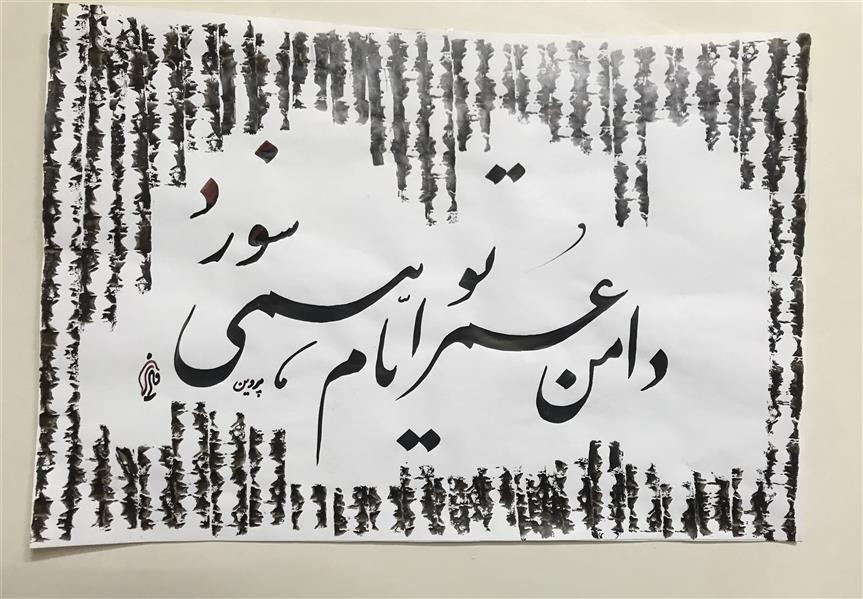 دامن عُمر تو ایّام همی سوزد
پروین